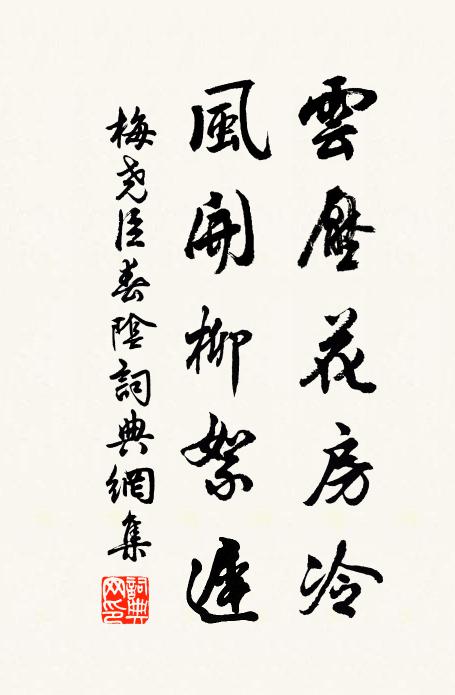 雲壓花房冷
風開柳絮遲
梅堯臣春陰詞典網集
詞典網印